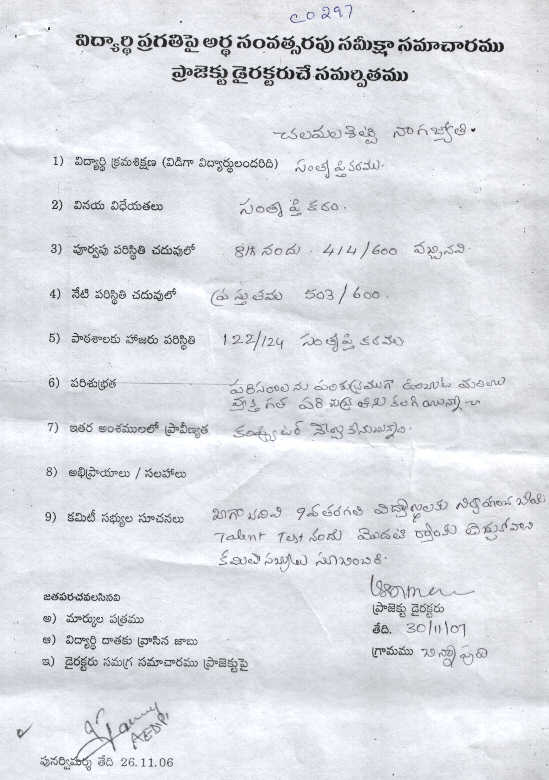 CO 297
విద్యార్థి ప్రగతిపై అర్థ సంవత్సరపు సమీక్షా సమాచారము
ప్రాజెక్టు డైరక్టరుచే సమర్పితము
చలమలశెట్టి నాగజ్యోతి.
1) విద్యార్థి క్రమశిక్షణ (విడిగా విద్యార్థులందరిది) సంతృప్తికరము.
2) వినయ విధేయతలు సంతృప్తికరం.
3) పూర్వపు పరిస్థితి చదువులో 8th నందు. 414/600 వచ్చినవి.
4) నేటి పరిస్థితి చదువులో ప్రస్తుతము 503/600.
5) పాఠశాలకు హాజరు పరిస్థితి 122/124 సంతృప్తికరము
6) పరిశుభ్రత పరిసరాలను పరిశుభ్రముగా ఉంచుట మరియు
వ్యక్తిగత
7) ఇతర అంశములలో ప్రావీణ్యత కంప్యూటర్ నేర్చుకొనుచున్నాం.
8) అభిప్రాయాలు / సలహాలు
9) కమిటీ సభ్యుల సూచనలు బాగా చదివి 9వ తరగతి విద్యార్థులకు
Talent Test నందు మొదటి ర్యాంకు
కమిటీ సభ్యులు సూచించిరి.
జతపరచవలసినవి
ప్రాజెక్టు డైరక్టరు
అ) మార్కుల పత్రము
తేది. 30/11/07
ఆ) విద్యార్థి దాతకు వ్రాసిన జాబు
గ్రామము
ఇ) డైరక్టరు సమగ్ర సమాచారము ప్రాజెక్టుపై
AEDP.
పునర్విమర్శ తేది 26.11.06